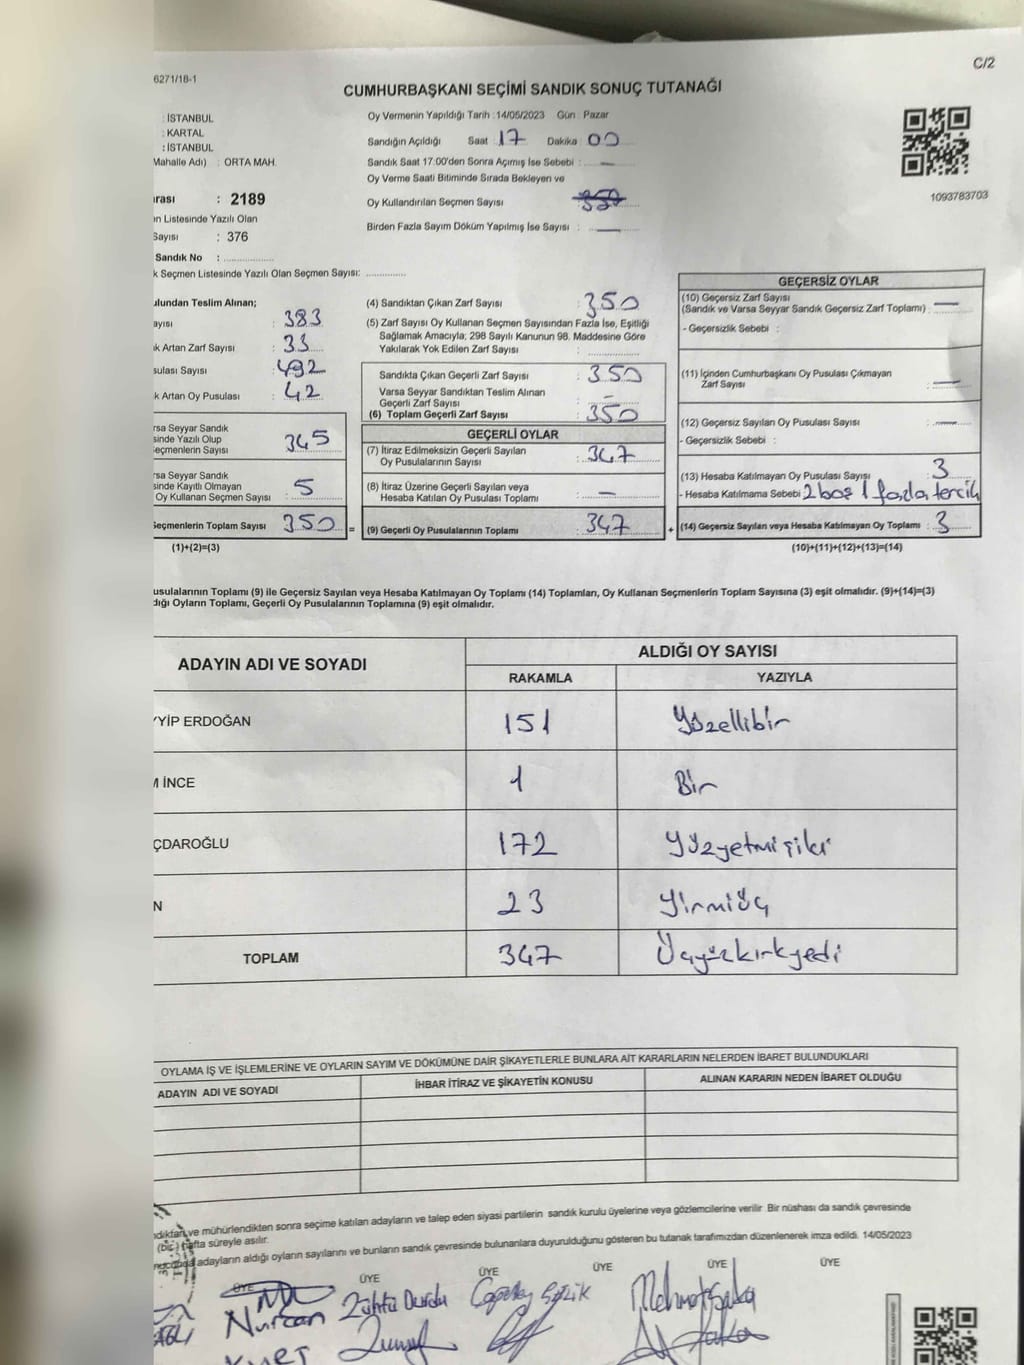 C/2
6271/18-1
CUMHURBAŞKANI SEÇİMİ SANDIK SONUÇ TUTANAĞI
: İSTANBUL
: KARTAL
: İSTANBUL
Mahalle Adı) : ORTA MAH.
Oy Vermenin Yapıldığı Tarih :14/05/2023 Gün : Pazar
Sandığın Açıldığı Saat :17 Dakika :00
Sandık Saat 17:00'den Sonra Açımış İse Sebebi :
Oy Verme Saati Bitiminde Sırada Bekleyen ve
Oy Kullandırılan Seçmen Sayısı
Birden Fazla Sayım Döküm Yapılmış İse Sayısı :
1093783703
: 2189
Listesinde Yazılı Olan
Sayısı : 376
Sandık No :
Seçmen Listesinde Yazılı Olan Seçmen Sayısı:
Teslim Alınan;
: 383
Artan Zarf Sayısı : 33
Sayısı : 492
Artan Oy Pusulası : 42
Seyyar Sandık
Yazılı Olup
Sayısı 345
Seyyar Sandık
Kayıtlı Olmayan
Oy Kullanan Seçmen Sayısı : 5
Seçmenlerin Toplam Sayısı 350 =
(1)+(2)=(3)
(4) Sandıktan Çıkan Zarf Sayısı : 350
(5) Zarf Sayısı Oy Kullanan Seçmen Sayısından Fazla İse, Eşitliği
Sağlamak Amacıyla; 298 Sayılı Kanunun 98. Maddesine Göre
Yakılarak Yok Edilen Zarf Sayısı :
Sandıkta Çıkan Geçerli Zarf Sayısı : 350
Varsa Seyyar Sandıktan Teslim Alınan
Geçerli Zarf Sayısı : -
(6) Toplam Geçerli Zarf Sayısı : 350
GEÇERLİ OYLAR
(7) İtiraz Edilmeksizin Geçerli Sayılan
Oy Pusulalarının Sayısı : 347
(8) İtiraz Üzerine Geçerli Sayılan veya
Hesaba Katılan Oy Pusulası Toplamı : -
(9) Geçerli Oy Pusulalarının Toplamı : 347 +
GEÇERSİZ OYLAR
(10) Geçersiz Zarf Sayısı
(Sandık ve Varsa Seyyar Sandık Geçersiz Zarf Toplamı) : -
- Geçersizlik Sebebi :
(11) İçinden Cumhurbaşkanı Oy Pusulası Çıkmayan
Zarf Sayısı : -
(12) Geçersiz Sayılan Oy Pusulası Sayısı : -
- Geçersizlik Sebebi :
(13) Hesaba Katılmayan Oy Pusulası Sayısı : 3
- Hesaba Katılmama Sebebi : 2 boş 1 fazla tercih
(14) Geçersiz Sayılan veya Hesaba Katılmayan Oy Toplamı : 3
(10)+(11)+(12)+(13)=(14)
Toplamı (9) ile Geçersiz Sayılan veya Hesaba Katılmayan Oy Toplamı (14) Toplamları, Oy Kullanan Seçmenlerin Toplam Sayısına (3) eşit olmalıdır. (9)+(14)=(3)
Oyların Toplamı, Geçerli Oy Pusulalarının Toplamına (9) eşit olmalıdır.
ADAYIN ADI VE SOYADI
ALDIĞI OY SAYISI
RAKAMLA YAZIYLA
YİP ERDOĞAN 151 Yüzellibir
İNCE 1 Bir
ÇDAROĞLU 172 Yüzyetmişiki
N 23 Yirmiüç
TOPLAM 347 Üçyüzkırkyedi
OYLAMA İŞ VE İŞLEMLERİNE VE OYLARIN SAYIM VE DÖKÜMÜNE DAİR ŞİKAYETLERLE BUNLARA AİT KARARLARIN NELERDEN İBARET BULUNDUKLARI
ADAYIN ADI VE SOYADI İHBAR İTİRAZ VE ŞİKAYETİN KONUSU ALINAN KARARIN NEDEN İBARET OLDUĞU
ve mühürlendikten sonra seçime katılan adayların ve talep eden siyasi partilerin sandık kurulu üyelerine veya gözlemcilerine verilir. Bir nüshası da sandık çevresinde
(bir) hafta süreyle asılır.
adayların aldığı oyların sayılarını ve bunların sandık çevresinde bulunanlara duyurulduğunu gösteren bu tutanak tarafımızdan düzenlenerek imza edildi. 14/05/2023
ÜYE ÜYE ÜYE ÜYE ÜYE ÜYE
Nurcan Zühtü Durdu Mehmet